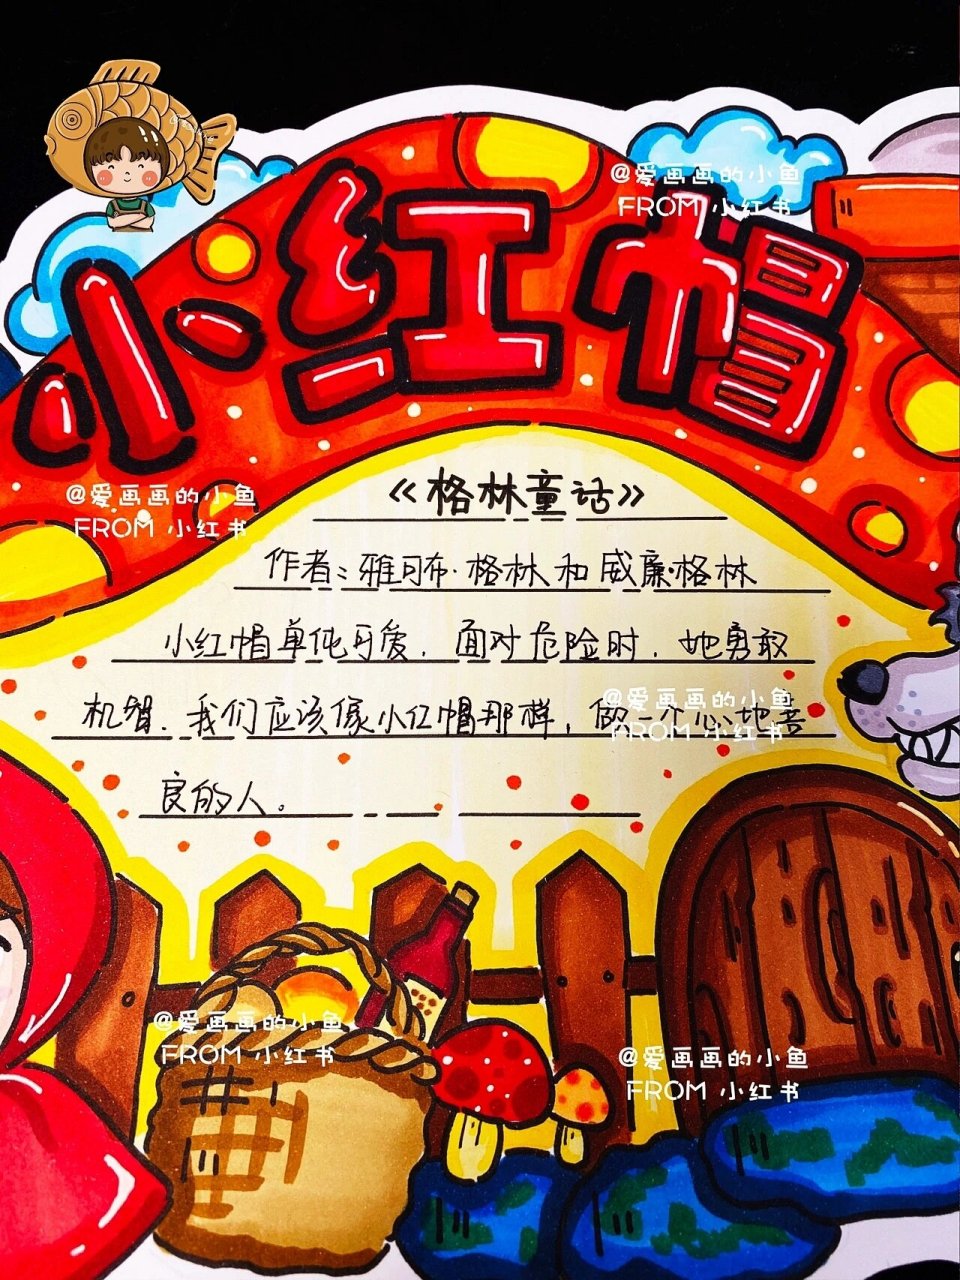 @爱画画的小鱼
FROM 小红书
小红帽
@爱画画的小鱼
FROM 小红书
《格林童话》
作者:雅可布·格林和威廉·格林
小红帽单纯可爱，面对危险时，她勇敢
机智，我们应该像小红帽那样，做一个心地善
良的人。
@爱画画的小鱼
FROM 小红书
@爱画画的小鱼
FROM 小红书
@爱画画的小鱼
FROM 小红书